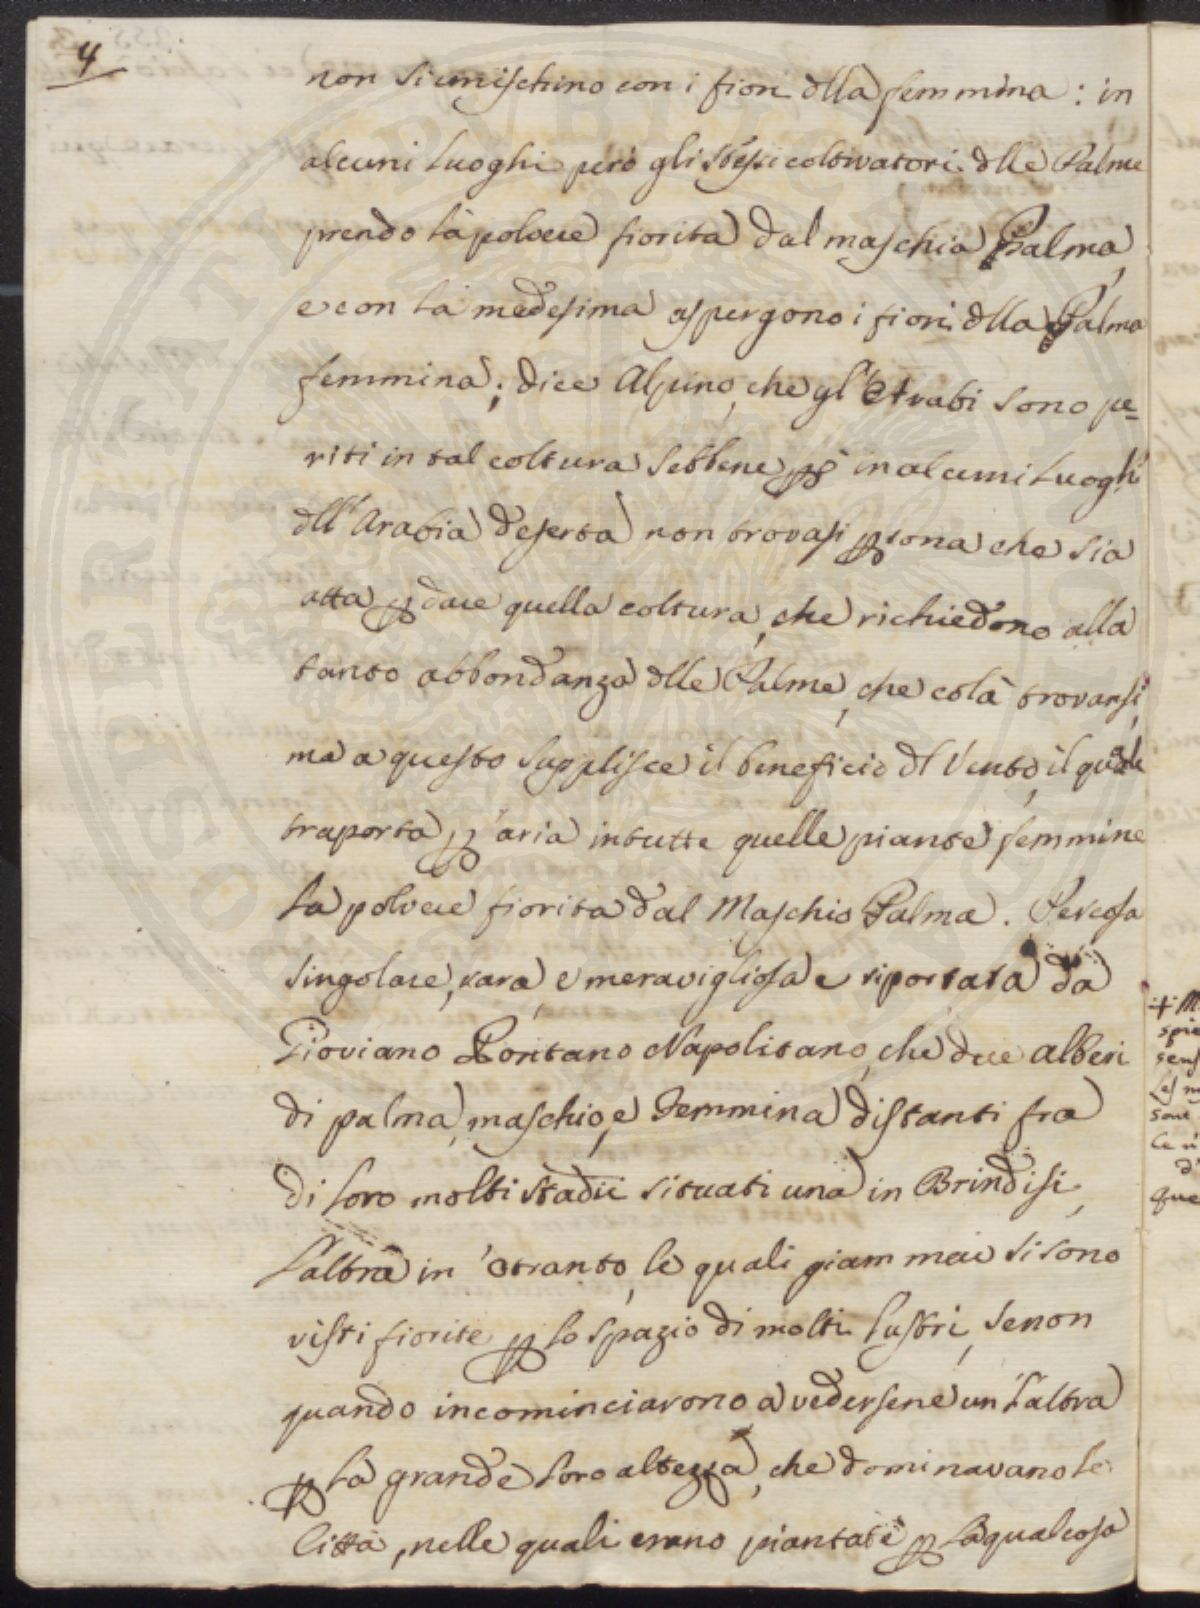 4
non si unischino con i fiori dlla femmina: in
alcuni luoghi però gli stessi coltivatori dlle Palme
prendo la polvere fiorita dal maschia Palma,
e con la medesima aspergono i fiori dlla Palma
femmina; dice Alpino, che gl' Arabi sono pe=
riti in tal coltura sebbene però in alcuni luoghi
dll' Arabia deserta non trovasi psona che sia
atta p dare quella coltura, che richiedono alla
tanto abbondanza dlle Palme, che colà trovansi,
ma a questo supplisce il beneficio dl Vento, il quale
traporta p aria in tutte quelle piante femmine
la polvere fiorita dal Maschio Palma. Per cosa
singolare, rara, e meravigliosa e riportata da
Gioviano Pontano Napolitano, che due alberi
di palma, maschio, e Femmina distanti fra
di loro molti stadii situati una in Brindisi,
l'altra in Otranto, le quali giam mai si sono
visti fiorite p lo spazio di molti lustri, se non
quando incominciarono a vedersene un l'altra
p la grande loro altezza, che dominavano le
Città, nelle quali erano piantate p la qual cosa
+ M
spie
sens
Les
sont
Ce
d'
que